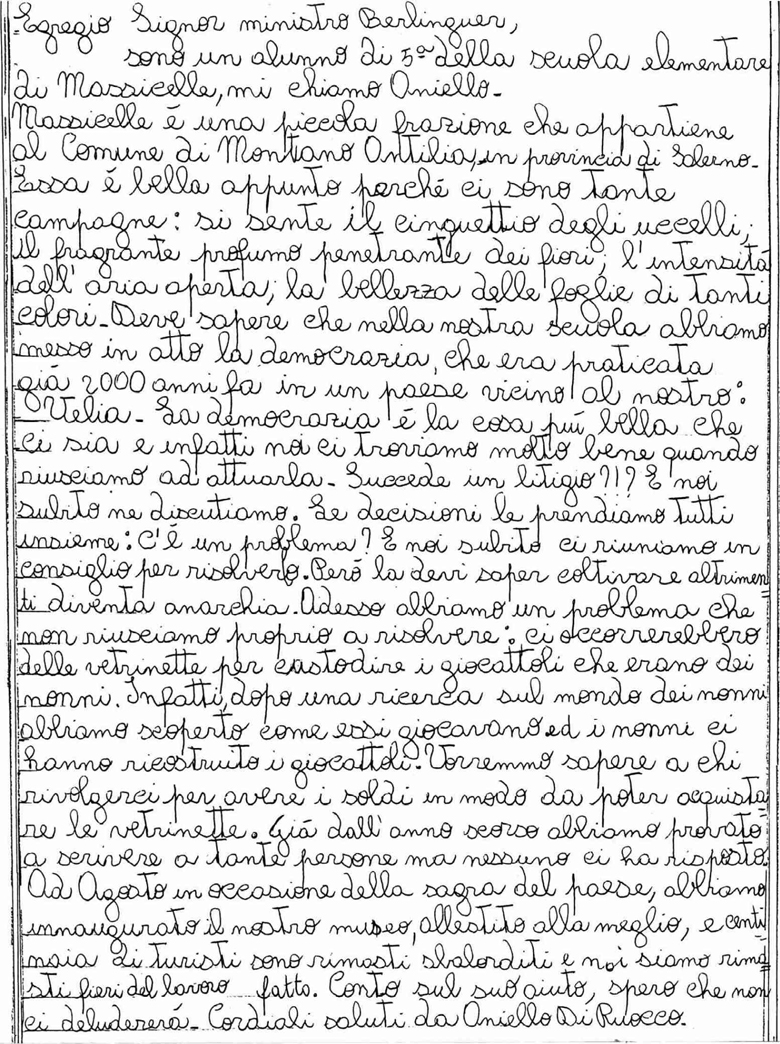 Egregio Signor ministro Berlinguer,
sono un alunno di 5ª della scuola elementare
di Massicelle, mi chiamo Aniello.
Massicelle é una piccola frazione che appartiene
al Comune di Montano Antilia, in provincia di Salerno.
Essa é bella appunto perché ci sono tante
campagne: si sente il cinguettio degli uccelli,
il fragrante profumo penetrante dei fiori, l'intensitá
dell'aria aperta, la bellezza delle foglie di tanti
colori. Deve sapere che nella nostra scuola abbiamo
messo in atto la democrazia, che era praticata
giá 2000 anni fa in un paese vicino al nostro:
Velia. La democrazia é la cosa piú bella che
ci sia e infatti noi ci troviamo molto bene quando
riusciamo ad attuarla. Succede un litigio?!? E noi
subito ne discutiamo. Le decisioni le prendiamo tutti
insieme: C'é un problema? E noi subito ci riuniamo in
consiglio per risolverlo. Peró la devi saper coltivare altrimen=
ti diventa anarchia. Adesso abbiamo un problema che
non riusciamo proprio a risolvere: ci occorrerebbero
delle vetrinette per custodire i giocattoli che erano dei
nonni. Infatti, dopo una ricerca sul mondo dei nonni
abbiamo scoperto come essi giocavano ed i nonni ci
hanno ricostruito i giocattoli. Vorremmo sapere a chi
rivolgerci per avere i soldi in modo da poter acquista
re le vetrinette. Giá dall'anno scorso abbiamo provato
a scrivere a tante persone ma nessuno ci ha risposto.
Ad Agosto in occasione della sagra del paese, abbiamo
innaugurato il nostro museo, allestito alla meglio, e centi
naia di turisti sono rimasti sbalorditi e noi siamo rima=
sti fieri del lavoro fatto. Conto sul suo aiuto, spero che non
ci deludererá. Cordiali saluti da Aniello Di Ruocco.